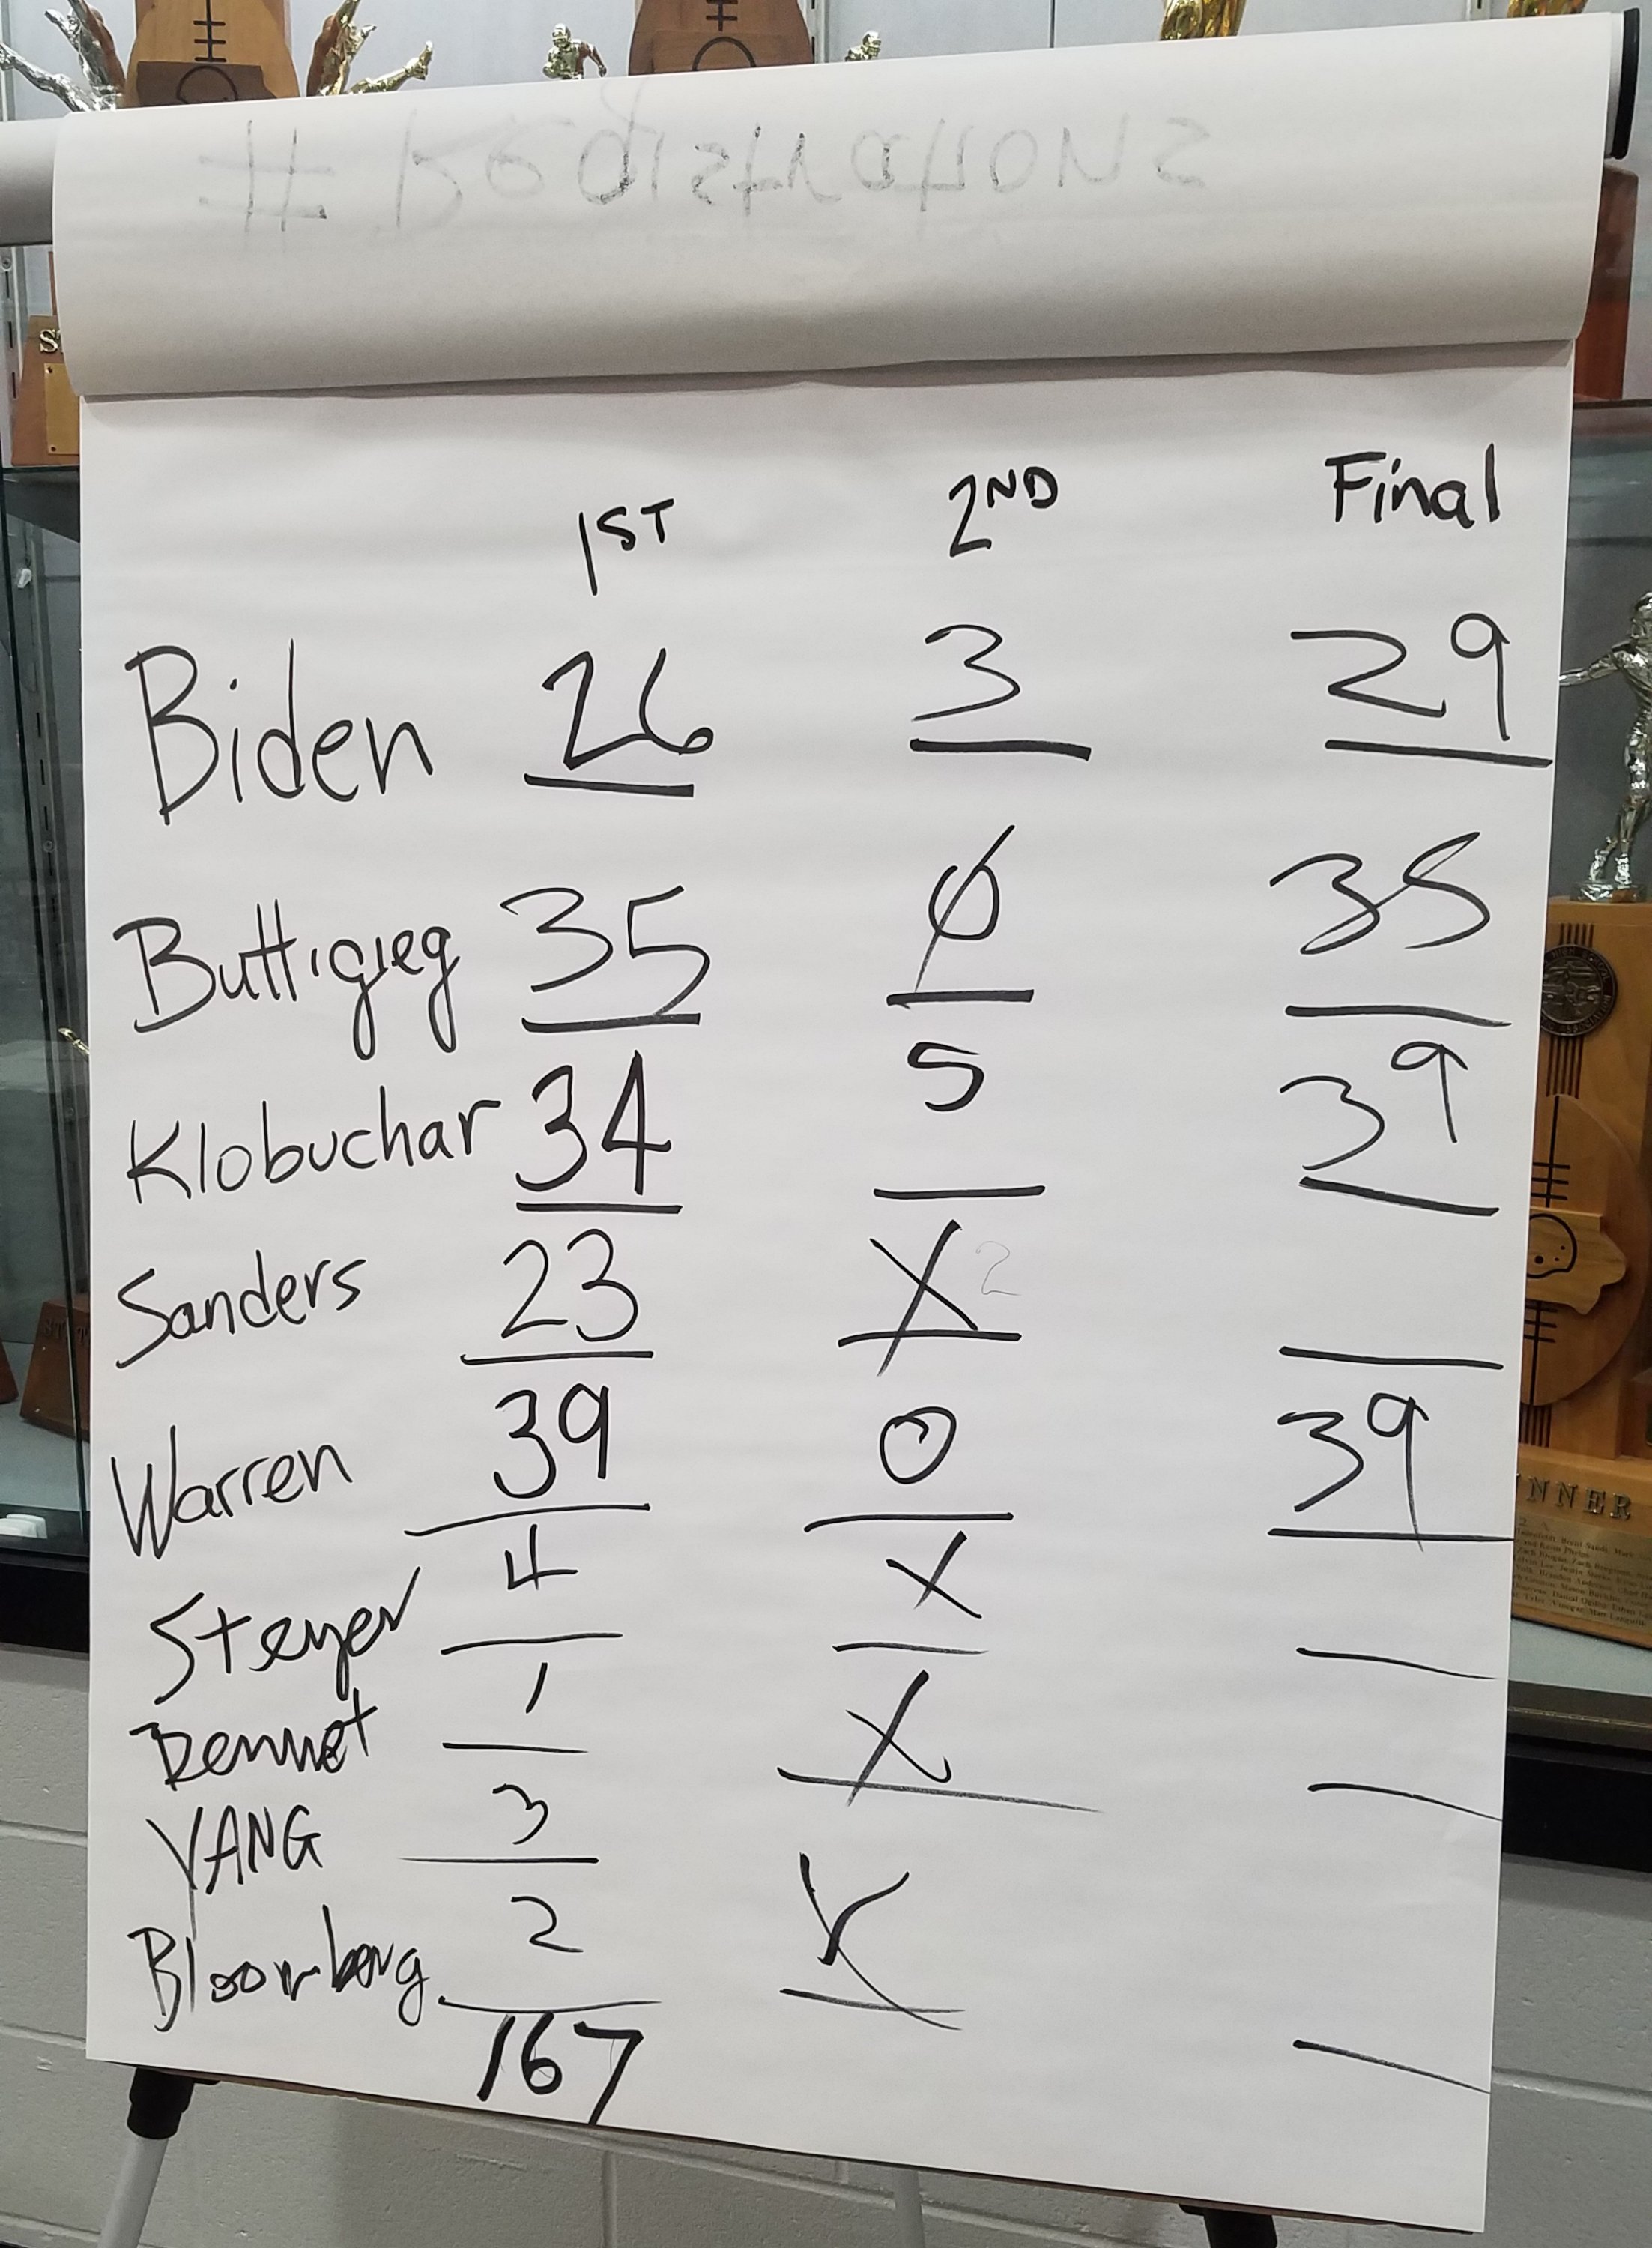 # Registrations
1ST 2ND Final
Biden 26 3 29
Buttigieg 35 0 35
Klobuchar 34 5 39
Sanders 23 X 2
Warren 39 0 39
Steyer 4 X
Bennet 1 X
YANG 3
Bloomberg 2 X
167
NNER